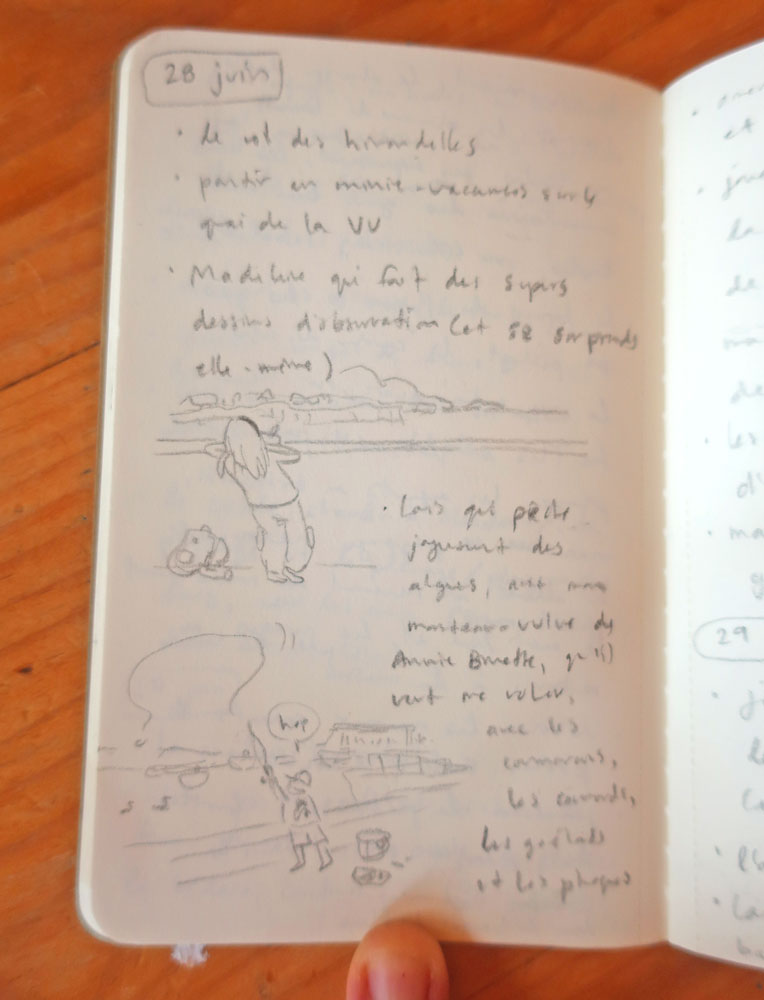 28 juin
• le vol des hirondelles
• partir en minie-vacances sur le
quai de la VV
• Madeleine qui fait des supers
dessins d'observation (et se surprends
elle-même)
• Lois qui pêche
joyeusement des
algues, avec mon
manteau-vulve de
Annie Brunette, qu'il
veut me voler,
avec les
cormorans,
les canards,
les goélands
et les phoques
hop
et
la
de
de
• les
d'
29